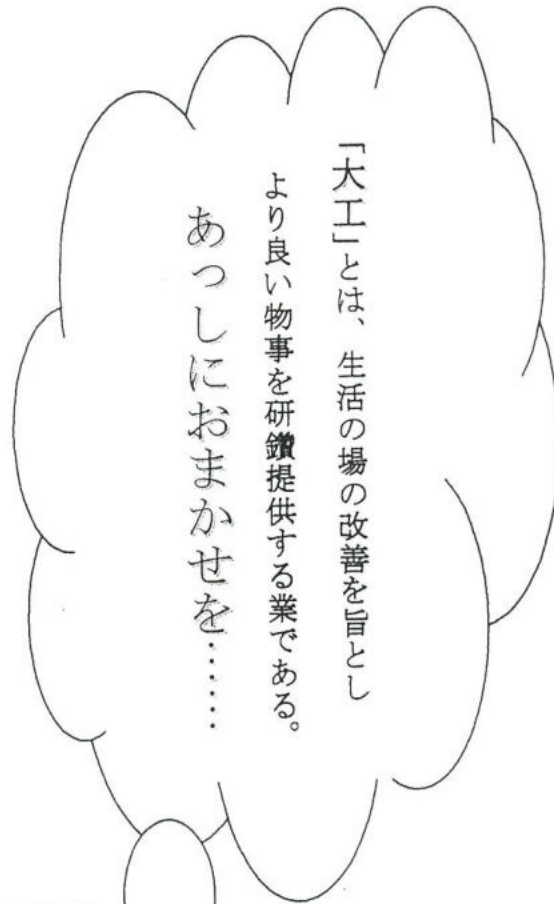 「大工」とは、生活の場の改善を旨とし
より良い物事を研鑽提供する業である。
あっしにおまかせを……